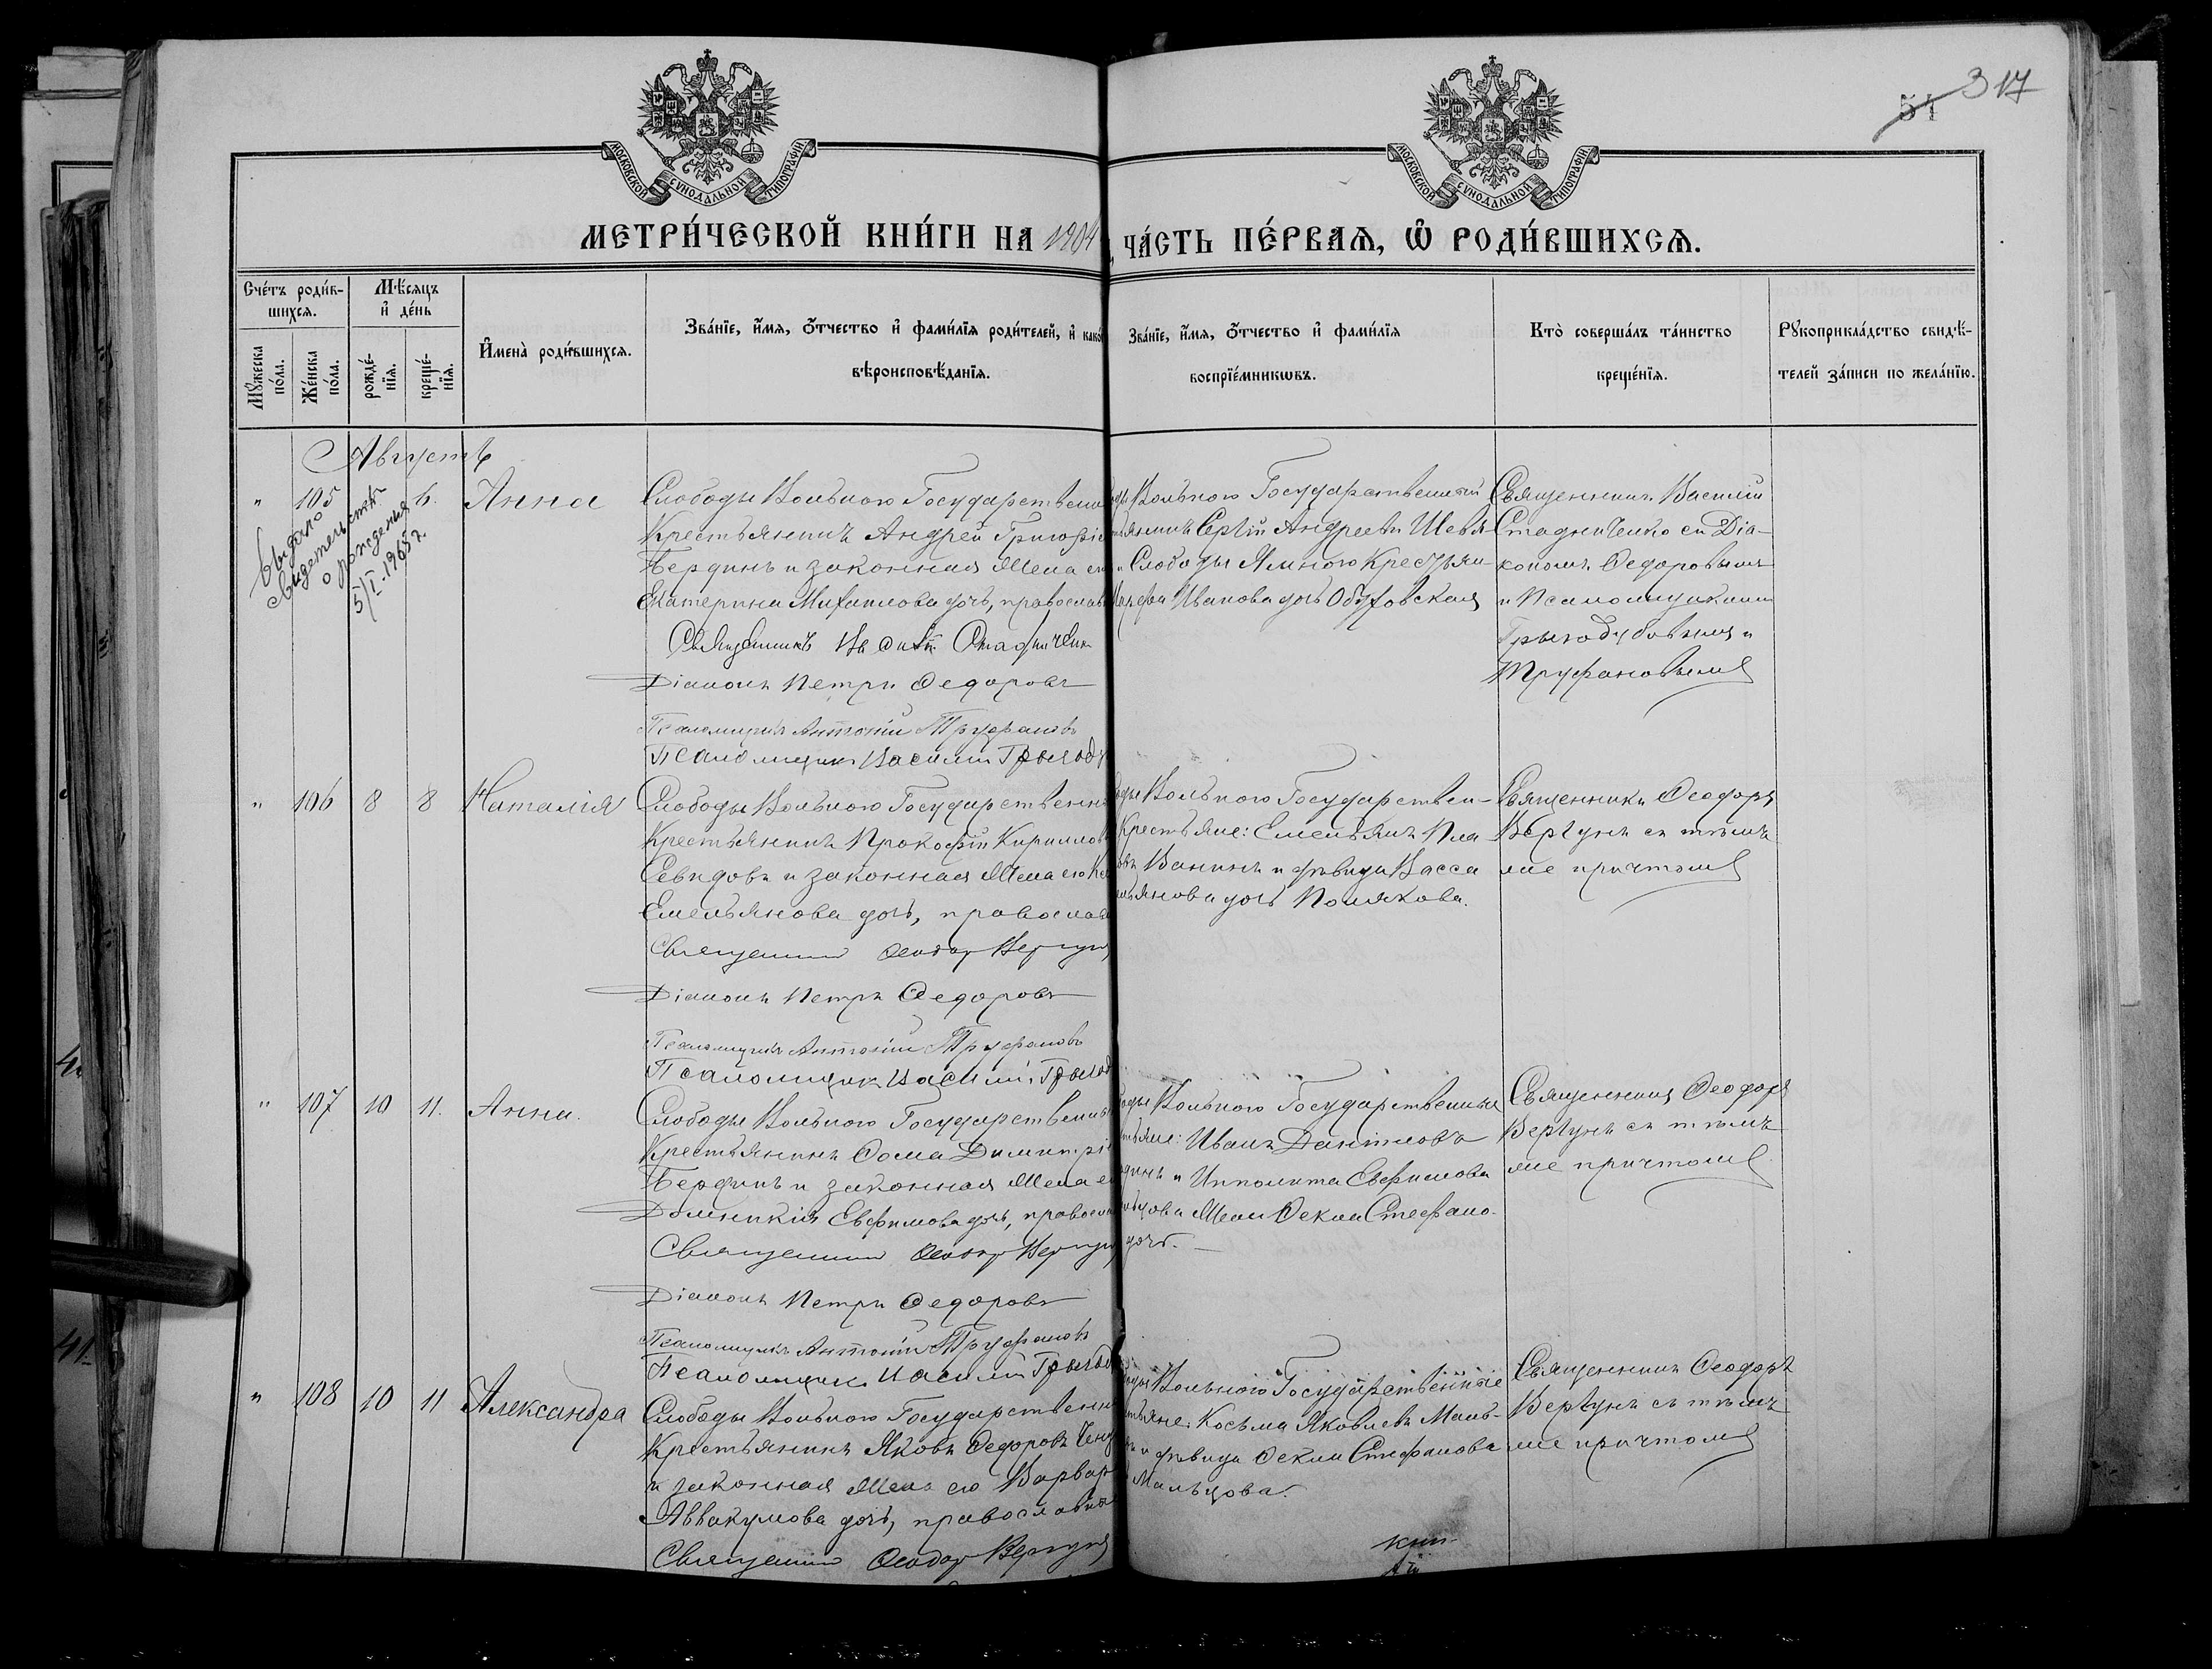 317
54
МОСКОВСКОЙ СУНОДАЛЬНОЙ ТИПОГРАФІИ
МОСКОВСКОЙ СУНОДАЛЬНОЙ ТИПОГРАФІИ
МЕТРИ́ЧЕСКОЙ КНИ́ГИ НА 1904
ЧА́СТЬ ПЕ́РВАѦ, Ѽ РОДИ́ВШИХСѦ.
Сче́тъ роди́в-
шихсѧ.
Мꙋ́жеска по́ла.
Же́нска по́ла.
Мѣ́сѧцъ
и҆ де́нь
рожде́-
нїѧ.
креще́-
нїѧ.
И҆мена̀ роди́вшихсѧ.
Зва́нїе, и҆́мѧ, ѻ҆́тчество и҆ фами́лїѧ роди́телей, и҆ како́
вѣроисповѣ́данїѧ.
Зва́нїе, и҆́мѧ, ѻ҆́тчество и҆ фами́лїѧ
воспрїе́мникѡвъ.
Кто̀ соверша́лъ та́инство
креще́нїѧ.
Рꙋкоприкла́дство свидѣ́-
телей за́писи по жела́нїю.
Августъ
" 105 6. Анна
Выдано
свидетельств.
о рождения
5/I-1965 г.
Слободы Вольного Государствен
Крестьянинъ Андрей Григорі
Бердинъ и законная жена е
Екатерина Михаилова дочь, православ
Священникъ Василій Стадниченк
Діаконъ Петръ Федоровъ
Псаломщикъ Антоній Труфановъ
Псаломщикъ Василій
ды Вольного Государственный
янинъ Сергій Андреевъ Шевя
и Слободы Ямного Крестьян-
Марфа Иванова дочь Обуховская
Священникъ Василій
Стадниченко съ Діа-
кономъ Федоровымъ
и Псаломщиками
и
Труфановымъ
" 106 8 8 Наталія
Слободы Вольного Государственн
Крестьянинъ Прокофій Кириллов
Севидовъ и законная жена его
Емельянова дочь, православ
Священникъ Ѳеодоръ Вергунъ
Діаконъ Петръ Федоровъ
Псаломщикъ Антоній Труфановъ
Псаломщикъ Василій
ды Вольного Государствен-
Крестьяне: Емельянъ Пла
овъ Ванинъ и дѣвица Васса
ельянова дочь Полякова.
Священникъ Ѳеодоръ
Вергунъ съ тѣмъ
же причтомъ
" 107 10 11. Анна.
Слободы Вольного Государственны
Крестьянинъ Ѳома Димитрі
Бердинъ и законная жена е
Домникія Евфимова дочь, правосла
Священникъ Ѳеодоръ Вергунъ
Діаконъ Петръ Федоровъ
Псаломщикъ Антоній Труфановъ
Псаломщикъ Василій
оды Вольного Государственные
тьяне: Иванъ Даніиловъ
динъ и Ипполита Евфимова
цова жена Ѳекла Стефано-
дочь.
Священникъ Ѳеодоръ
Вергунъ съ тѣмъ
же причтомъ
" 108 10 11 Александра
Слободы Вольного Государственн
Крестьянинъ Яковъ Федоровъ
и законная жена его Варвар
Аввакумова дочь, православн
Священникъ Ѳеодоръ Вергунъ
оды Вольного Государственные
тьяне: Косьма Яковлевъ Маль-
и дѣвица Ѳекла Стефанова
Мальцова.
Священникъ Ѳеодоръ
Вергунъ съ тѣмъ
же причтомъ